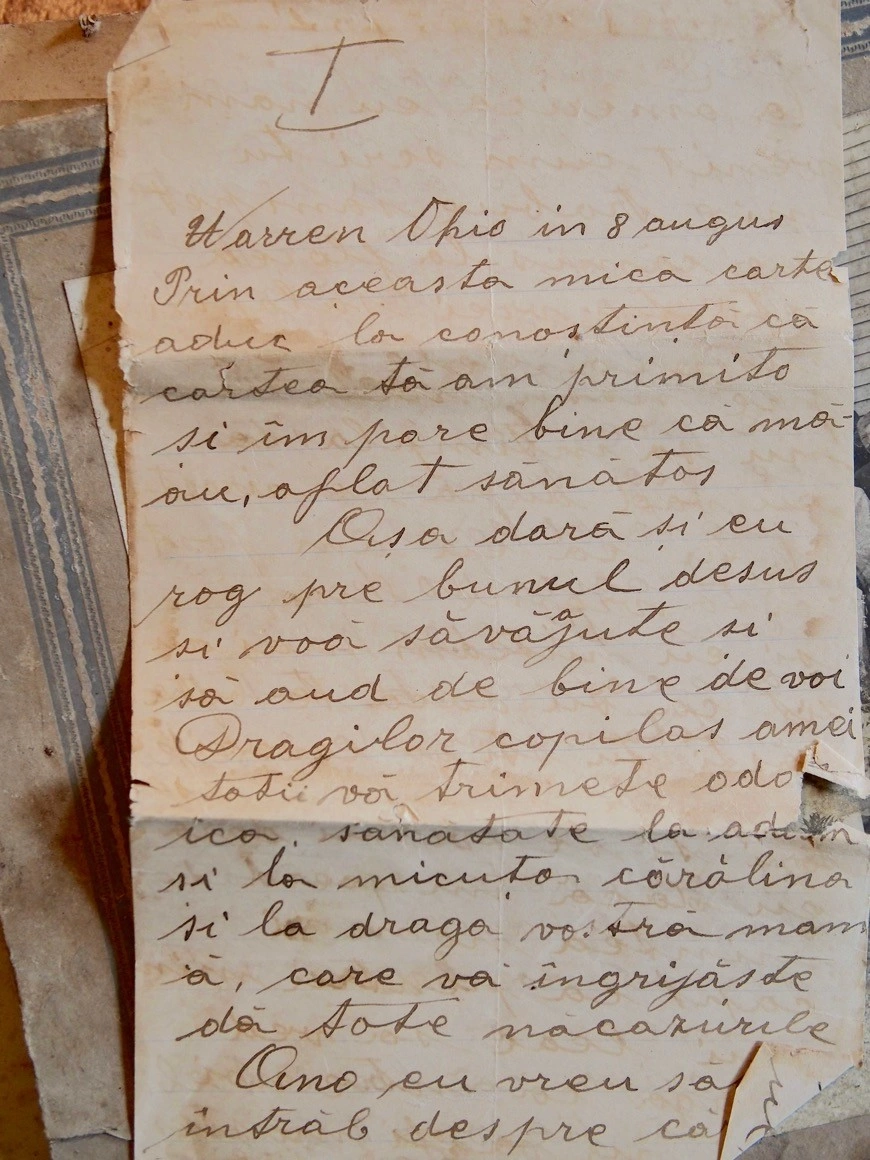 I
Warren Ohio in 8 augus
Prin aceasta mica carte
aduc la conostintă că
cartea tă am primito
si îm pare bine că mă
au, aflat sănătos
Asa dară si eu
rog pre bunul desus
si voă să vă ajute si
să aud de bine de voi
Dragilor copilas amei
totii vă trimete odo
ica, sănătate la adam
si la micuta cărălina
si la draga vostră mam
ă, care vă îngrijăste
dă tote năcazurile
Ano eu vreu să
întrăb despre că